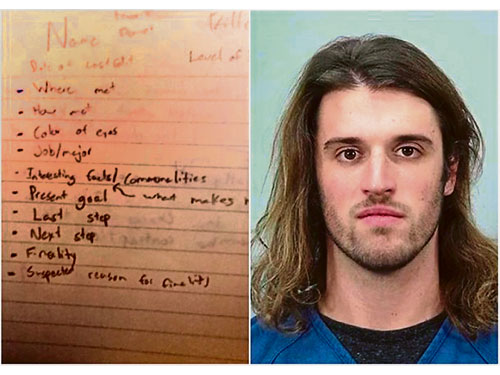 Name
Level of
Where met
How met
Color of eyes
Job/major
Interesting facts/commonalities
Present goal what makes
Last step
Next step
Finality
Suspected reason for finality